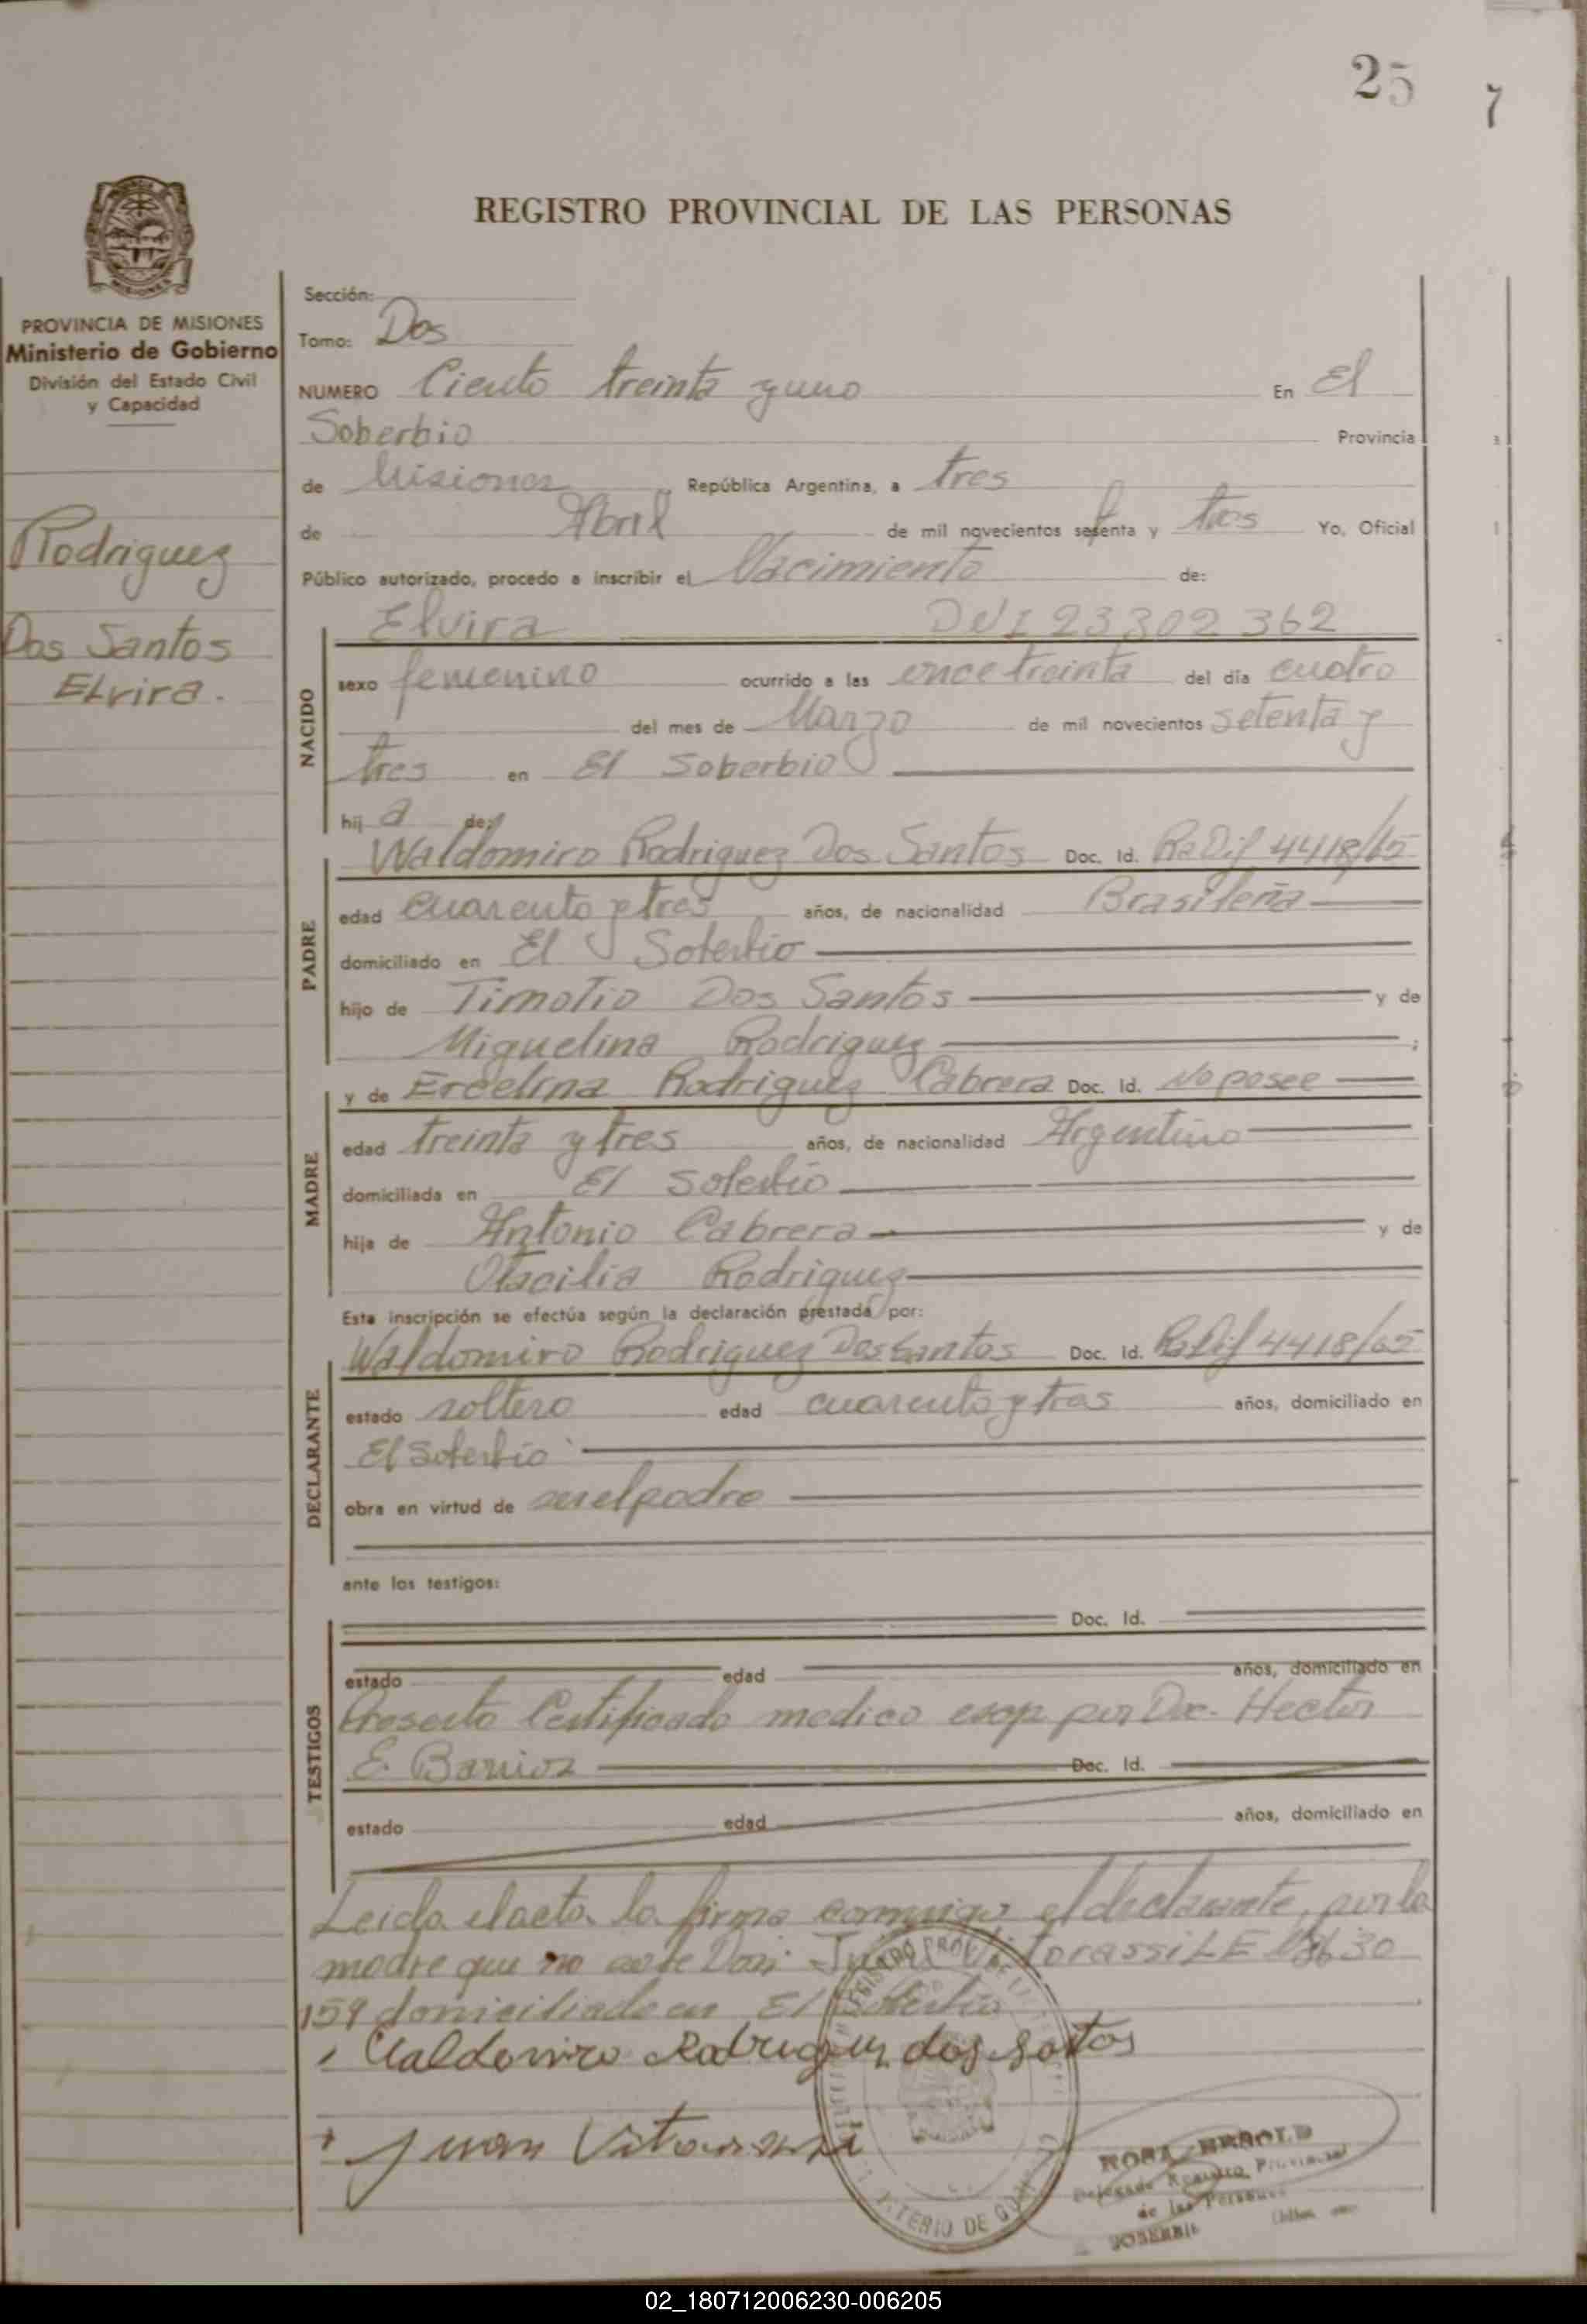 25 7
REGISTRO PROVINCIAL DE LAS PERSONAS
MISIONES
PROVINCIA DE MISIONES
Ministerio de Gobierno
División del Estado Civil
y Capacidad
Rodriguez
Dos Santos
Elvira.
Sección:
Tomo: Dos
NUMERO Ciento treinta y uno En El
Soberbio Provincia
de Misiones República Argentina, a tres
de Abril de mil novecientos setenta y tres Yo, Oficial
Público autorizado, procedo a inscribir el Nacimiento de:
Elvira DNI 23302 362
NACIDO
sexo femenino ocurrido a las once treinta del día cuatro
del mes de Marzo de mil novecientos setenta y
tres en El Soberbio
hij a de:
Waldomiro Rodriguez Dos Santos Doc. Id. 4418/65
PADRE
edad cuarenta y tres años, de nacionalidad Brasileña
domiciliado en El Soberbio
hijo de Timotio Dos Santos y de
Miguelina Rodriguez ;
y de Ercelina Rodriguez Cabrera Doc. Id. No posee
MADRE
edad treinta y tres años, de nacionalidad Argentina
domiciliada en El Soberbio
hija de Antonio Cabrera y de
Otacilia Rodriguez
Esta inscripción se efectúa según la declaración prestada por:
Waldomiro Rodriguez Dos Santos Doc. Id. 4418/65
DECLARANTE
estado soltero edad cuarenta y tres años, domiciliado en
El Soberbio
obra en virtud de ser el padre
ante los testigos:
Doc. Id.
TESTIGOS
estado edad años, domiciliado en
Presento Certificado medico exp por Doc. Hector
E. Barrios Doc. Id.
estado edad años, domiciliado en
Leida el acta la firma conmigo el declarante, por la
madre que no sabe Don Juan LE
159 domiciliado en El Soberbio
Waldomiro Rodriguez dos santos
Juan
ROSA HEROLD
Delegada Registro Provincial
de las Personas
SOBERBIO
02_180712006230-006205